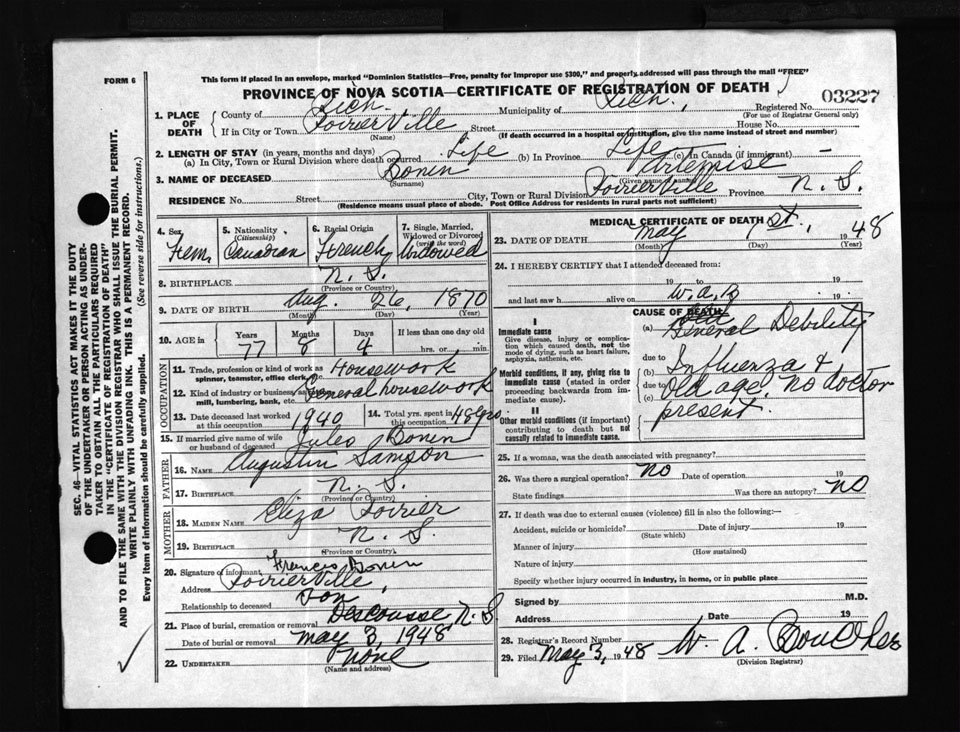 FORM 6
This form if placed in an envelope, marked "Dominion Statistics—Free, penalty for improper use $300," and properly addressed will pass through the mail "FREE"
PROVINCE OF NOVA SCOTIA—CERTIFICATE OF REGISTRATION OF DEATH
03227
1. PLACE OF DEATH
County of Rich. Municipality of Rich., Registered No.
(For use of Registrar General only)
If in City or Town PoirierVille Street House No.
(Name) (If death occurred in a hospital or institution, give the name instead of street and number)
2. LENGTH OF STAY (in years, months and days)
(a) In City, Town or Rural Division where death occurred Life (b) In Province Life (c) In Canada (if immigrant) —
3. NAME OF DECEASED Bonin
(Surname) (Given name or names)
RESIDENCE No. Street City, Town or Rural Division PoirierVille Province N. S.
(Residence means usual place of abode. Post Office Address for residents in rural parts not sufficient)
4. Sex Fem.
5. Nationality (Citizenship) Canadian
6. Racial Origin French
7. Single, Married, Widowed or Divorced (write the word) Widowed
8. BIRTHPLACE N. S.
(Province or Country)
9. DATE OF BIRTH Aug. 26, 1870
(Month) (Day) (Year)
10. AGE in Years Months Days If less than one day old
77 8 4 hrs. or min.
OCCUPATION
11. Trade, profession or kind of work as spinner, teamster, office clerk, Housework
12. Kind of industry or business, as mill, lumbering, bank, etc. General housework
13. Date deceased last worked at this occupation 1940
14. Total yrs. spent in 48 yrs.
15. If married give name of wife or husband of deceased Jules Bonin
FATHER
16. NAME Augustin Samson
17. BIRTHPLACE N. S.
(Province or Country)
MOTHER
18. MAIDEN NAME Eliza Poirier
19. BIRTHPLACE N. S.
(Province or Country)
20. Signature of informant Francis Bonin
Address PoirierVille
Relationship to deceased Son
21. Place of burial, cremation or removal Descousse N. S
Date of burial or removal May 3, 1948
22. UNDERTAKER None
(Name and address)
MEDICAL CERTIFICATE OF DEATH
23. DATE OF DEATH May 1st, 1948
(Month) (Day) (Year)
24. I HEREBY CERTIFY that I attended deceased from:
19 to 19
and last saw h alive on W.A.B 19
CAUSE OF DEATH
I
Immediate cause
Give disease, injury or complication which caused death, not the mode of dying, such as heart failure, asphyxia, asthenia, etc.
(a) General Debility
due to
Morbid conditions, if any, giving rise to immediate cause (stated in order proceeding backwards from immediate).
(b) Influenza &
due to
(c) Old age. No doctor
present.
II
Other morbid conditions (if important) contributing to death but not causally related to immediate cause.
25. If a woman, was the death associated with pregnancy?
26. Was there a surgical operation? No Date of operation 19
State findings Was there an autopsy? No
27. If death was due to external causes (violence) fill in also the following:—
Accident, suicide or homicide? Date of injury 19
(State which)
Manner of injury
(How sustained)
Nature of injury
Specify whether injury occurred in industry, in home, or in public place
Signed by M.D.
Address Date 19
28. Registrar's Record Number
29. Filed May 3, 1948 W. A.
(Division Registrar)
SEC. 46—VITAL STATISTICS ACT MAKES IT THE DUTY
OF THE UNDERTAKER OR PERSON ACTING AS UNDER-
TAKER TO OBTAIN ALL THE PARTICULARS REQUIRED
IN THE "CERTIFICATE OF REGISTRATION OF DEATH"
AND TO FILE THE SAME WITH THE DIVISION REGISTRAR WHO SHALL ISSUE THE BURIAL PERMIT.
WRITE PLAINLY WITH UNFADING INK. THIS IS A PERMANENT RECORD.
Every item of information should be carefully supplied. (See reverse side for instructions.)